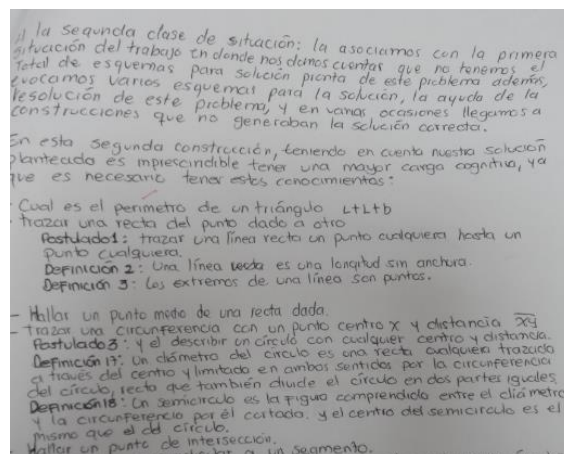 A la segunda clase de situación: la asociamos con la primera
situación del trabajo en donde nos damos cuentas que no tenemos el
total de esquemas para solución pronta de este problema además,
evocamos varios esquemas para la solución, la ayuda de la
resolución de este problema, y en varias ocasiones llegamos a
construcciones que no generaban la solución correcta.
En esta segunda construcción, teniendo en cuenta nuestra solución
planteada es imprescindible tener una mayor carga cognitiva, ya
que es necesario tener estos conocimientos:
· Cual es el perimetro de un triángulo L+L+b
· trazar una recta del punto dado a otro
Postulado 1: trazar una línea recta un punto cualquiera hasta un
punto cualquiera.
Definición 2: Una línea es una longitud sin anchura.
Definición 3: Los extremos de una línea son puntos.
- Hallar un punto medio de una recta dada.
- Trazar una circunferencia con un punto centro x y distancia xy
Postulado 3: y el describir un círculo con cualquier centro y distancia.
Definición 17: Un diámetro del circulo es una recta cualquiera trazada
a través del centro y limitado en ambos sentidos por la circunferencia
del círculo, recta que también divide el círculo en dos partes iguales
Definición 18: Un semicirculo es la figura comprendida entre el diámetro
y la circunferencia por él cortada. y el centro del semicirculo es el
mismo que el del circulo.
Hallar un punto de intersección.
a un segmento.